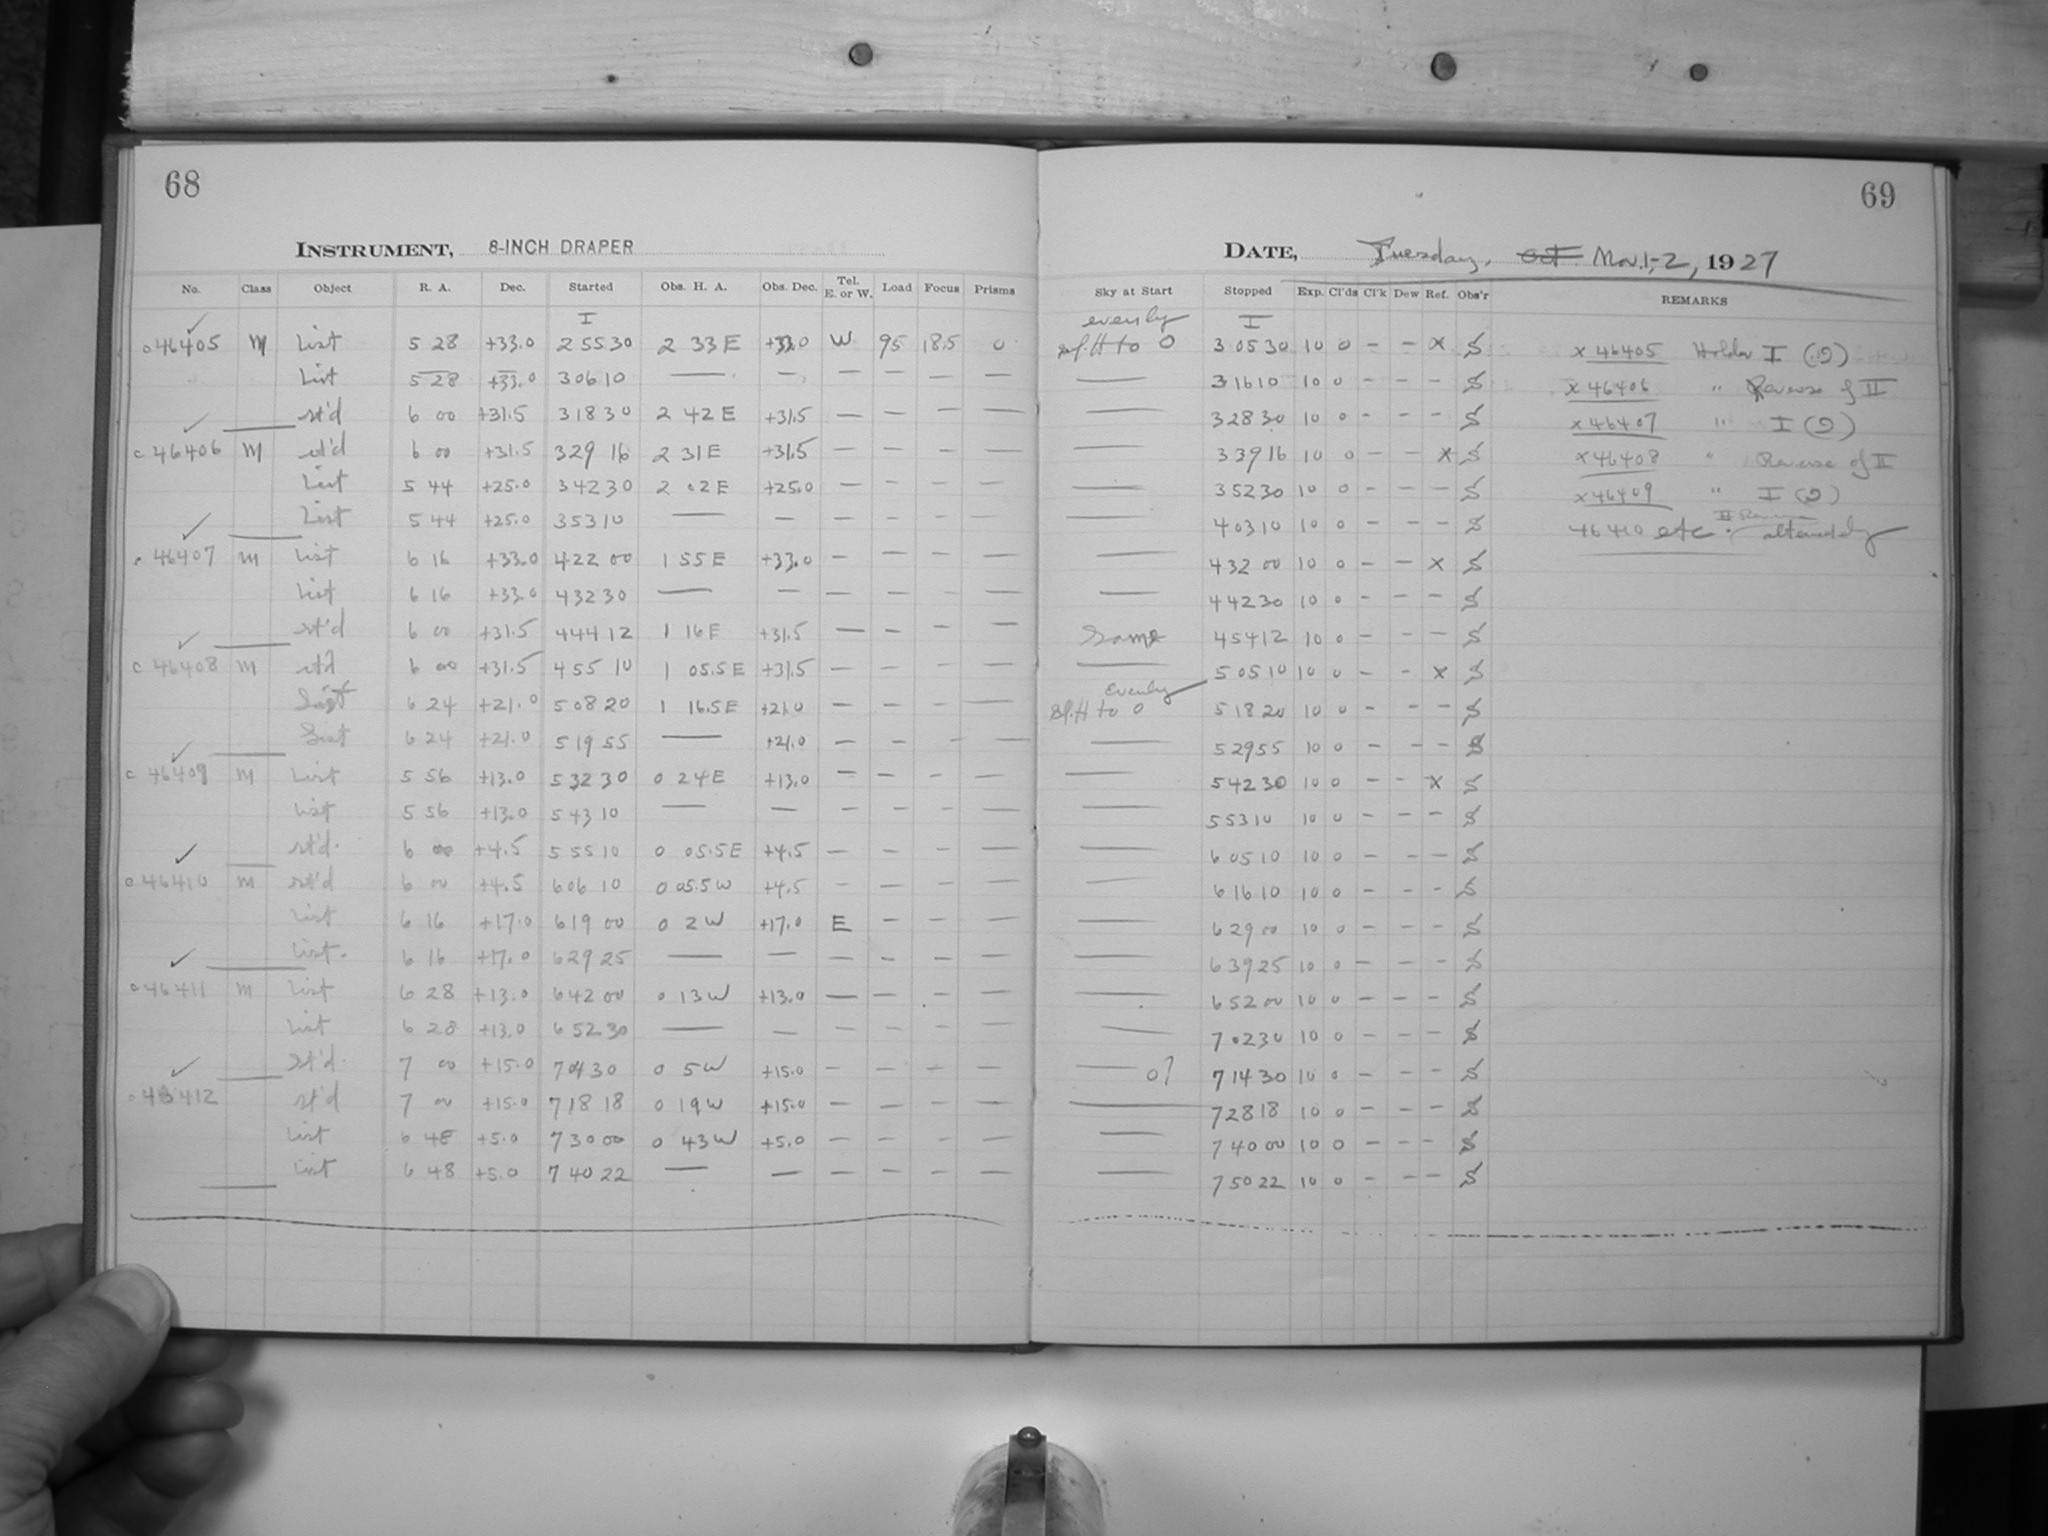 68
INSTRUMENT, 8-INCH DRAPER
No. Class Object R. A. Dec. Started Obs. H. A. Obs. Dec. Tel. E. or W. Load Focus Prisms
I
46405 M List 5 28 +33.0 2 55 30 2 33 E +33.0 W 95 18.5 0
List 5 28 +33.0 3 06 10 — — — — — —
st'd 6 00 +31.5 3 18 30 2 42 E +31.5 — — — —
c 46406 M st'd 6 00 +31.5 3 29 16 2 31 E +31.5 — — — —
List 5 44 +25.0 3 42 30 2 02 E +25.0 — — — —
List 5 44 +25.0 3 53 10 — — — — — —
46407 M List 6 16 +33.0 4 22 00 1 55 E +33.0 — — — —
List 6 16 +33.0 4 32 30 — — — — — —
st'd 6 00 +31.5 4 44 12 1 16 E +31.5 — — — —
c 46408 M st'd 6 00 +31.5 4 55 10 1 05.5 E +31.5 — — — —
List 6 24 +21.0 5 08 20 1 16.5 E +21.0 — — — —
List 6 24 +21.0 5 19 55 — +21.0 — — — —
c 46409 M List 5 56 +13.0 5 32 30 0 24 E +13.0 — — — —
List 5 56 +13.0 5 43 10 — — — — — —
st'd. 6 00 +4.5 5 55 10 0 05.5 E +4.5 — — — —
c 46410 M st'd 6 00 +4.5 6 06 10 0 05.5 W +4.5 — — — —
List 6 16 +17.0 6 19 00 0 2 W +17.0 E — — —
List. 6 16 +17.0 6 29 25 — — — — — —
c 46411 M List 6 28 +13.0 6 42 00 0 13 W +13.0 — — — —
List 6 28 +13.0 6 52 30 — — — — — —
st'd. 7 00 +15.0 7 04 30 0 5 W +15.0 — — — —
46412 st'd 7 00 +15.0 7 18 18 0 19 W +15.0 — — — —
List 6 48 +5.0 7 30 00 0 43 W +5.0 — — — —
List 6 48 +5.0 7 40 22 — — — — — —
69
DATE, Tuesday, Oct. Nov. 1-2, 1927
Sky at Start Stopped Exp. Cl'ds Cl'k Dew Ref. Obs'r REMARKS
evenly I
sl. H to 0 3 05 30 10 0 — — x S x 46405 Holder I (2)
— 3 16 10 10 0 — — — S x 46406 " Reverse of II
— 3 28 30 10 0 — — — S x 46407 " I (2)
— 3 39 16 10 0 — — x S x 46408 " Reverse of II
— 3 52 30 10 0 — — — S x 46409 " I (2)
— 4 03 10 10 0 — — — S 46410 etc. alternately
— 4 32 00 10 0 — — x S
— 4 42 30 10 0 — — — S
Same 4 54 12 10 0 — — — S
— 5 05 10 10 0 — — x S
Evenly
sl. H to 0 5 18 20 10 0 — — — S
— 5 29 55 10 0 — — — S
— 5 42 30 10 0 — — x S
— 5 53 10 10 0 — — — S
— 6 05 10 10 0 — — — S
— 6 16 10 10 0 — — — S
— 6 29 00 10 0 — — — S
— 6 39 25 10 0 — — — S
— 6 52 00 10 0 — — — S
— 7 02 30 10 0 — — — S
— 0? 7 14 30 10 0 — — — S
— 7 28 18 10 0 — — — S
— 7 40 00 10 0 — — — S
— 7 50 22 10 0 — — — S